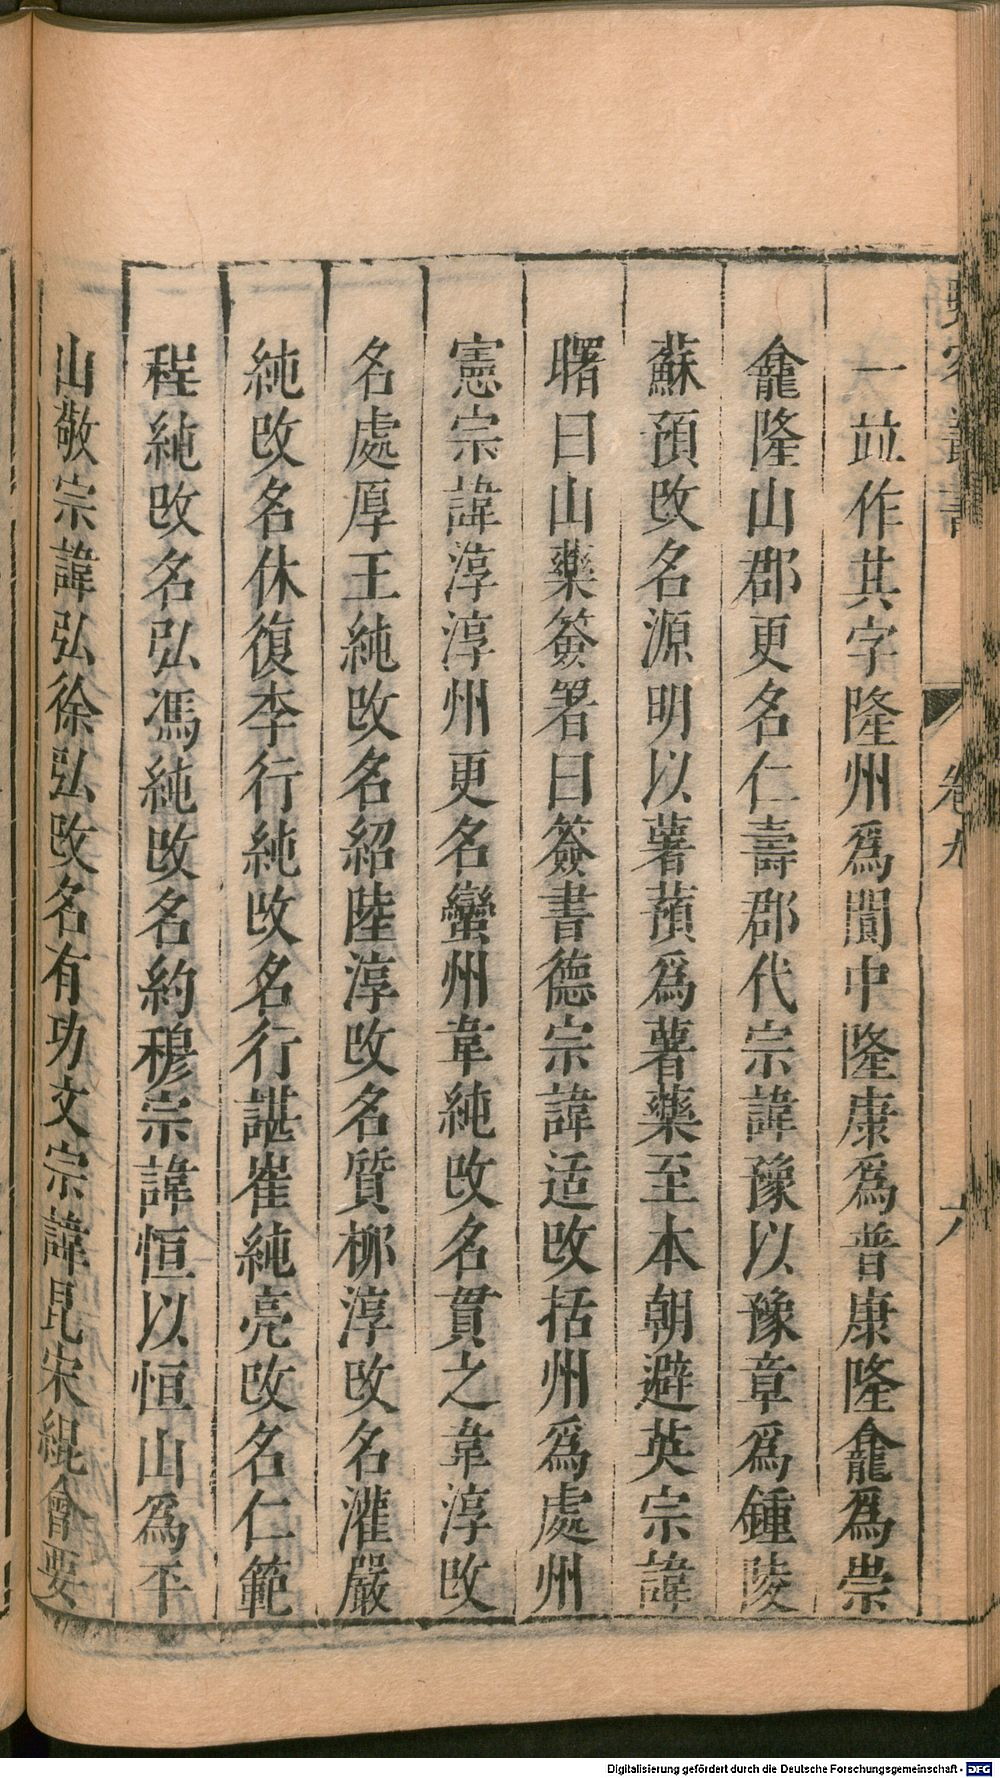 卷九
六
一竝作其字隆州爲閬中隆康爲普康隆龕爲崇
龕隆山郡更名仁壽郡代宗諱豫以豫章爲鍾陵
蘇預攺名源明以薯蕷爲薯藥至本朝避英宗諱
曙曰山藥簽署曰簽書德宗諱适攺括州爲處州
憲宗諱淳淳州更名蠻州韋純攺名貫之韋淳攺
名處厚王純攺名紹陸淳攺名質柳淳攺名灌嚴
純攺名休復李行純攺名行諶崔純亮攺名仁範
程純攺名弘馮純攺名約穆宗諱恒以恒山爲平
山敬宗諱弘徐弘攺名有功文宗諱昆宋緄會要
Digitalisierung gefördert durch die Deutsche Forschungsgemeinschaft - DFG